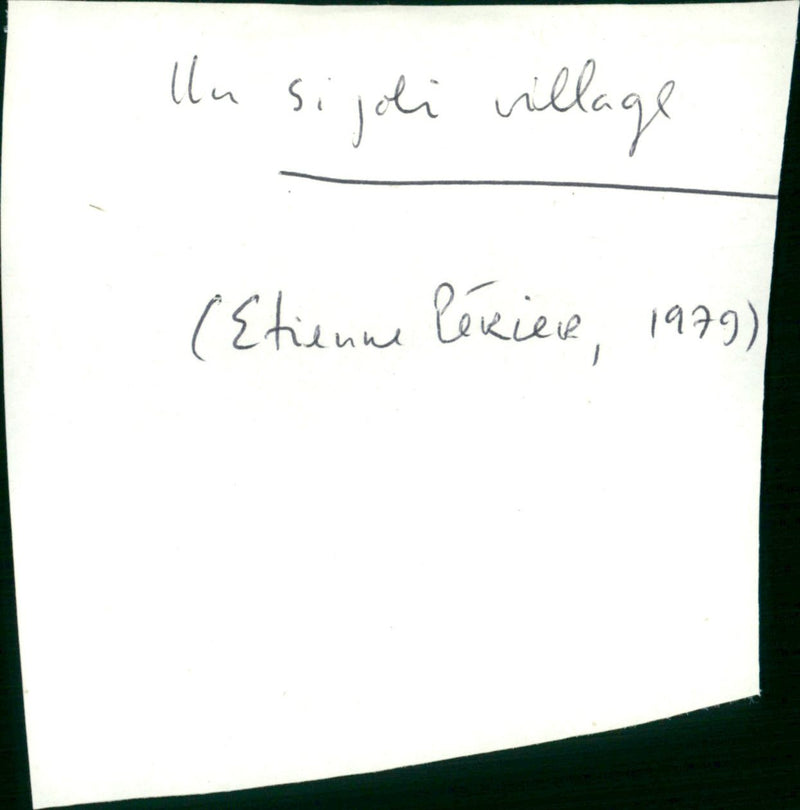 Un si joli village
(Etienne Périer, 1979)